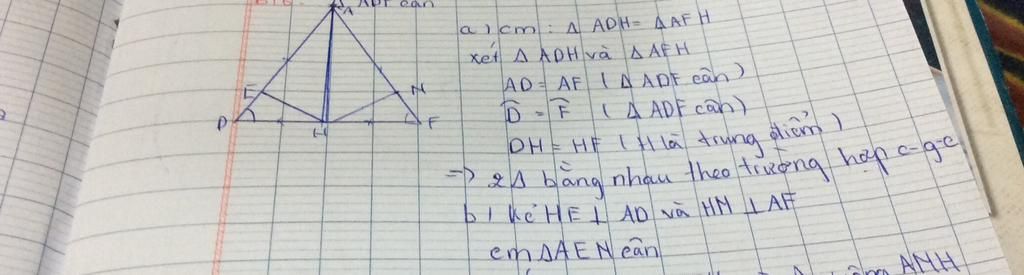 A ADF cân
E
N
D
H
F
a) cm : Δ ADH = Δ AFH
xét Δ ADH và Δ AFH
AD = AF ( Δ ADF cân )
D̂ = F̂ ( Δ ADF cân )
DH = HF ( H là trung điểm )
=> 2 Δ bằng nhau theo trường hợp c-g-c
b) Kẻ HE ⊥ AD và HN ⊥ AF
cm Δ AEN cân
ANH